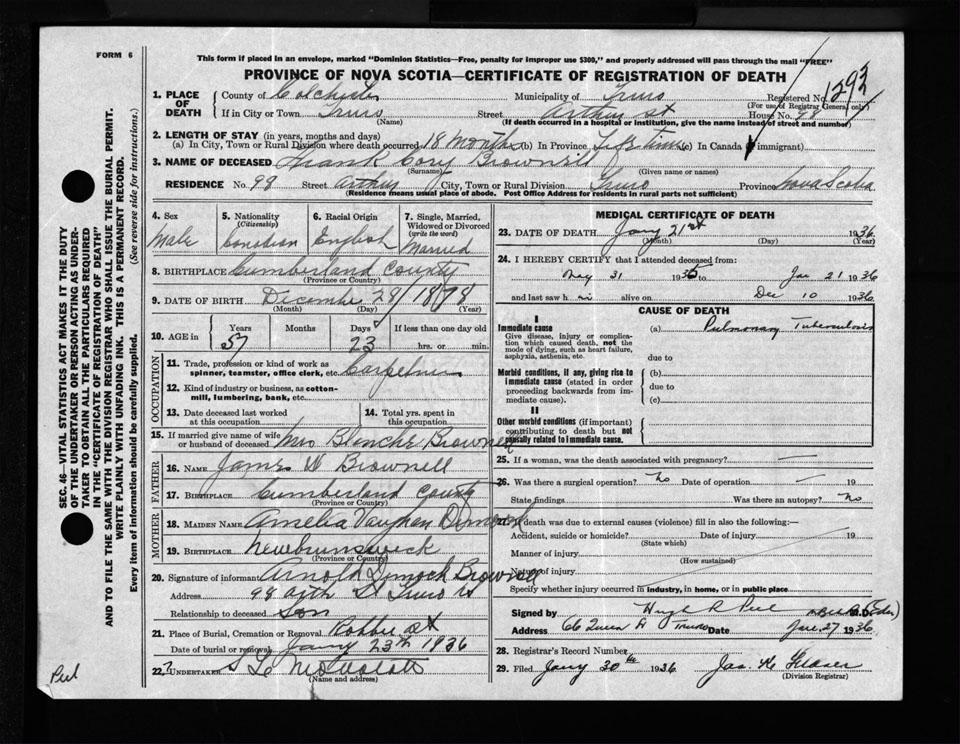 FORM 6
This form if placed in an envelope, marked "Dominion Statistics—Free, penalty for improper use $300," and properly addressed will pass through the mail "FREE"
PROVINCE OF NOVA SCOTIA—CERTIFICATE OF REGISTRATION OF DEATH
1. PLACE OF DEATH
County of Colchester Municipality of Truro Registered No. 1292
(For use of Registrar General only)
If in City or Town Truro Street Arthur St House No. 98
(Name) (If death occurred in a hospital or institution, give the name instead of street and number)
2. LENGTH OF STAY (in years, months and days)
(a) In City, Town or Rural Division where death occurred 18 months (b) In Province Life time (c) In Canada (if immigrant)
3. NAME OF DECEASED Frank Cory Brownell
(Surname) (Given name or names)
RESIDENCE No. 98 Street Arthur St City, Town or Rural Division Truro Province Nova Scotia
(Residence means usual place of abode. Post Office Address for residents in rural parts not sufficient)
4. Sex
Male
5. Nationality
(Citizenship)
Canadian
6. Racial Origin
English
7. Single, Married, Widowed or Divorced
(write the word)
Married
8. BIRTHPLACE Cumberland County
(Province or Country)
9. DATE OF BIRTH December 28/1878
(Month) (Day) (Year)
10. AGE in Years Months Days If less than one day old
57 23 hrs. or min.
OCCUPATION
11. Trade, profession or kind of work as spinner, teamster, office clerk, etc. Carpenter
12. Kind of industry or business, as cotton-mill, lumbering, bank, etc.
13. Date deceased last worked at this occupation
14. Total yrs. spent in this occupation
15. If married give name of wife or husband of deceased Mrs Blanche Brownell
FATHER
16. NAME James W Brownell
17. BIRTHPLACE Cumberland County
(Province or Country)
MOTHER
18. MAIDEN NAME Amelia Vaughan Dimock
19. BIRTHPLACE Newbrunswick
(Province or Country)
20. Signature of informant Arnold Dimock Brownell
Address 98 St Truro NS
Relationship to deceased Son
21. Place of Burial, Cremation or Removal Robbie St
Date of burial or removal Jany 23rd 1936
22.
(Name and address)
MEDICAL CERTIFICATE OF DEATH
23. DATE OF DEATH Jany 21st 1936
(Month) (Day) (Year)
24. I HEREBY CERTIFY that I attended deceased from:
May 31 1935 to Jan 21 1936
and last saw him alive on Dec 10 1936
CAUSE OF DEATH
I
Immediate cause
Give disease, injury or complication which caused death, not the mode of dying, such as heart failure, asphyxia, asthenia, etc.
(a) Pulmonary Tuberculosis
due to
Morbid conditions, if any, giving rise to immediate cause (stated in order proceeding backwards from immediate cause).
(b)
due to
(c)
II
Other morbid conditions (if important) contributing to death but not causally related to immediate cause.
25. If a woman, was the death associated with pregnancy? —
26. Was there a surgical operation? No Date of operation — 19
State findings Was there an autopsy? No
27. If death was due to external causes (violence) fill in also the following:—
Accident, suicide or homicide? Date of injury 19
(State which)
Manner of injury
(How sustained)
Nature of injury
Specify whether injury occurred in industry, in home, or in public place
Signed by Hugh R Peel
Address 66 Queen St Truro Date Jan 27 1936
28. Registrar's Record Number
29. Filed Jany 30th 1936 Jas. H. Fraser
(Division Registrar)
SEC. 46—VITAL STATISTICS ACT MAKES IT THE DUTY
OF THE UNDERTAKER OR PERSON ACTING AS UNDER-
TAKER TO OBTAIN ALL THE PARTICULARS REQUIRED
IN THE "CERTIFICATE OF REGISTRATION OF DEATH"
AND TO FILE THE SAME WITH THE DIVISION REGISTRAR WHO SHALL ISSUE THE BURIAL PERMIT.
WRITE PLAINLY WITH UNFADING INK. THIS IS A PERMANENT RECORD.
Every item of information should be carefully supplied. (See reverse side for instructions.)
Peel